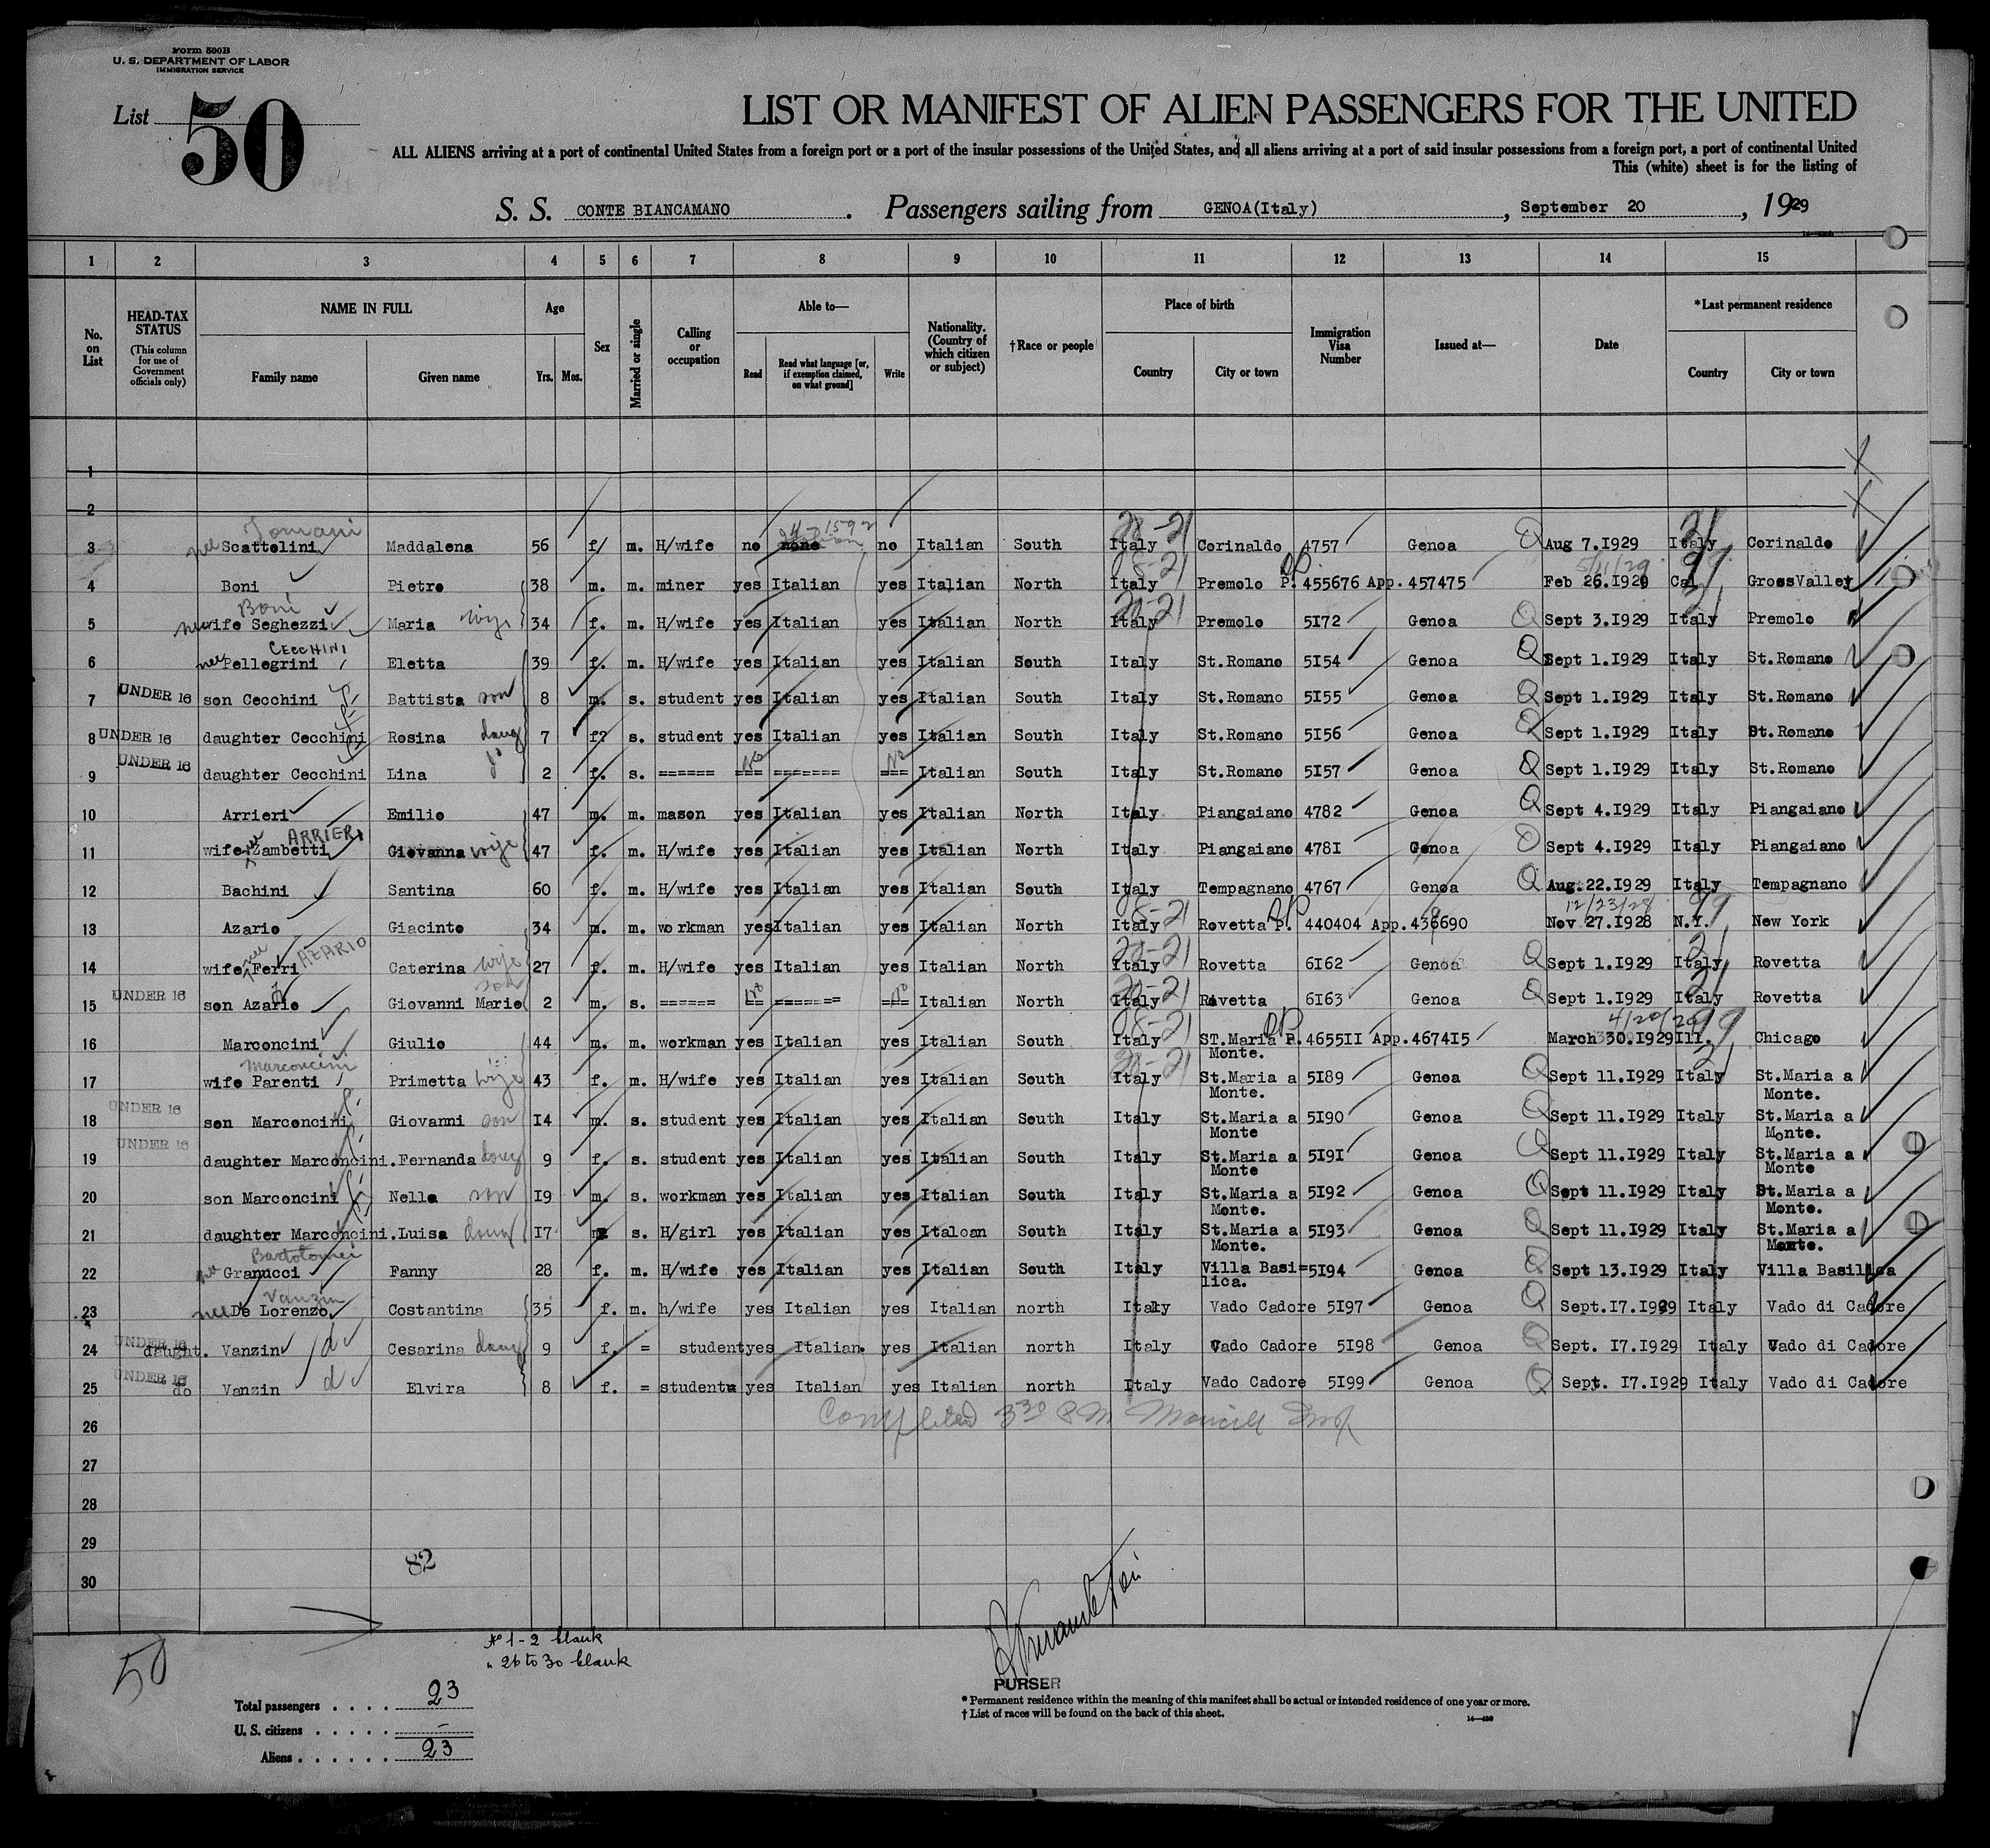 Form 500B
U. S. DEPARTMENT OF LABOR
IMMIGRATION SERVICE
List 50
LIST OR MANIFEST OF ALIEN PASSENGERS FOR THE UNITED
ALL ALIENS arriving at a port of continental United States from a foreign port or a port of the insular possessions of the United States, and all aliens arriving at a port of said insular possessions from a foreign port, a port of continental United
This (white) sheet is for the listing of
S. S. CONTE BIANCAMANO. Passengers sailing from GENOA(Italy), September 20, 1929
1 2 3 4 5 6 7 8 9 10 11 12 13 14 15
No. on List HEAD-TAX STATUS (This column for use of Government officials only) NAME IN FULL Family name Given name Age Yrs. Mos. Sex Married or single Calling or occupation Able to— Read Read what language [or, if exemption claimed, on what ground] Write Nationality. (Country of which citizen or subject) †Race or people Place of birth Country City or town Immigration Visa Number Issued at— Date *Last permanent residence Country City or town
1
2
Tomani 1592
3 nee Scattolini Maddalena 56 f m. H/wife no none Italian no Italian South Italy Corinaldo 4757 Genoa Q Aug 7.1929 Italy Corinaldo
5/11/29
4 Boni Pietro 38 m. m. miner yes Italian yes Italian North Italy Premolo P. 455676 App. 457475 Feb 26.1929 Cal GrossValley
Boni
5 nee wife Seghezzi Maria wife 34 f. m. H/wife yes Italian yes Italian North Italy Premolo 5I72 Genoa Q Sept 3.I929 Italy Premolo
CECCHINI
6 nee Pellegrini Eletta 39 f. m. H/wife yes Italian yes Italian South Italy St.Romano 5I54 Genoa Q Sept 1.I929 Italy St.Romano
7 UNDER 16 son Cecchini Battista son 8 m. s. student yes Italian yes Italian South Italy St.Romano 5I55 Genoa Q Sept 1.I929 Italy St.Romano
8 UNDER 16 daughter Cecchini Rosina daug 7 f? s. student yes Italian yes Italian South Italy St.Romano 5I56 Genoa Q Sept 1.I929 Italy St.Romano
9 UNDER 16 daughter Cecchini Lina do 2 f. s. ====== === No ======= === No Italian South Italy St.Romano 5I57 Genoa Q Sept 1.I929 Italy St.Romano
10 Arrieri Emilio 47 m. m. mason yes Italian yes Italian North Italy Piangaiano 4782 Genoa Q Sept 4.I929 Italy Piangaiano
ARRIERI
11 wife nee Zambetti Giovanna wife 47 f. m. H/wife yes Italian yes Italian North Italy Piangaiano 478I Genoa Q Sept 4.I929 Italy Piangaiano
12 Bachini Santina 60 f. m. H/wife yes Italian yes Italian South Italy Tempagnano 4767 Genoa Q Aug.22.I929 Italy Tempagnano
12/23/28
13 Azario Giacinto 34 m. m. workman yes Italian yes Italian North Italy Rovetta P. 440404 App.436690 Nov 27.I928 N.Y. New York
14 wife nee Ferri AZARIO Caterina wife 27 f. m. H/wife yes Italian yes Italian North Italy Rovetta 6I62 Genoa Q Sept 1.I929 Italy Rovetta
15 UNDER 16 son Azario Giovanni Mario son 2 m. s. ====== == No ======= === No Italian North Italy Rovetta 6I63 Genoa Q Sept 1.I929 Italy Rovetta
4/20/29
16 Marconcini Giulio 44 m. m. workman yes Italian yes Italian South Italy ST.Maria P. 4655II App.4674I5 March 30.I929 Ill. Chicago
Monte.
Marconcini
17 wife Parenti Primetta wife 43 f. m. H/wife yes Italian yes Italian South Italy St.Maria a 5I89 Genoa Q Sept 11.I929 Italy St.Maria a
Monte. Monte.
18 UNDER 16 son Marconcini Giovanni son I4 m. s. student yes Italian yes Italian South Italy St.Maria a 5I90 Genoa Q Sept 11.I929 Italy St.Maria a
Monte Monte.
19 UNDER 16 daughter Marconcini.Fernanda daug 9 f. s. student yes Italian yes Italian South Italy St.Maria a 5I9I Genoa Q Sept 11.I929 Italy St.Maria a
Monte Monte
20 son Marconcini Nello son I9 m. s. workman yes Italian yes Italian South Italy St.Maria a 5I92 Genoa Q Sept 11.I929 Italy St.Maria a
Monte. Monte.
21 daughter Marconcini.Luisa daug I7 s. H/girl yes Italian yes Italoan South Italy St.Maria a 5I93 Genoa Q Sept 11.I929 Italy St.Maria a
Monte. Monte.
Bartolomei
22 nee Granucci Fanny 28 f. m. H/wife yes Italian yes Italian South Italy Villa Basi= 5I94 Genoa Q Sept 13.I929 Italy Villa Basilica
lica.
Vanzin
23 nee De Lorenzo Costantina 35 f. m. h/wife yes Italian yes Italian north Italy Vado Cadore 5I97 Genoa Q Sept.I7.I929 Italy Vado di Cadore
24 UNDER 16 daught. Vanzin Cesarina daug 9 f. = student yes Italian. yes Italian north Italy Vado Cadore 5I98 Genoa Q Sept. I7.I929 Italy Vado di Cadore
25 UNDER 16 do Vanzin Elvira 8 f. = student yes Italian yes Italian north Italy Vado Cadore 5I99 Genoa Q Sept. I7.I929 Italy Vado di Cadore
26 Completed 3 30 PM
27
28
29
82
30
50
No 1-2 blank
" 26 to 30 blank
PURSER
Total passengers . . . . 23
U. S. citizens . . . . . –
Aliens . . . . . . 23
* Permanent residence within the meaning of this manifest shall be actual or intended residence of one year or more.
† List of races will be found on the back of this sheet.